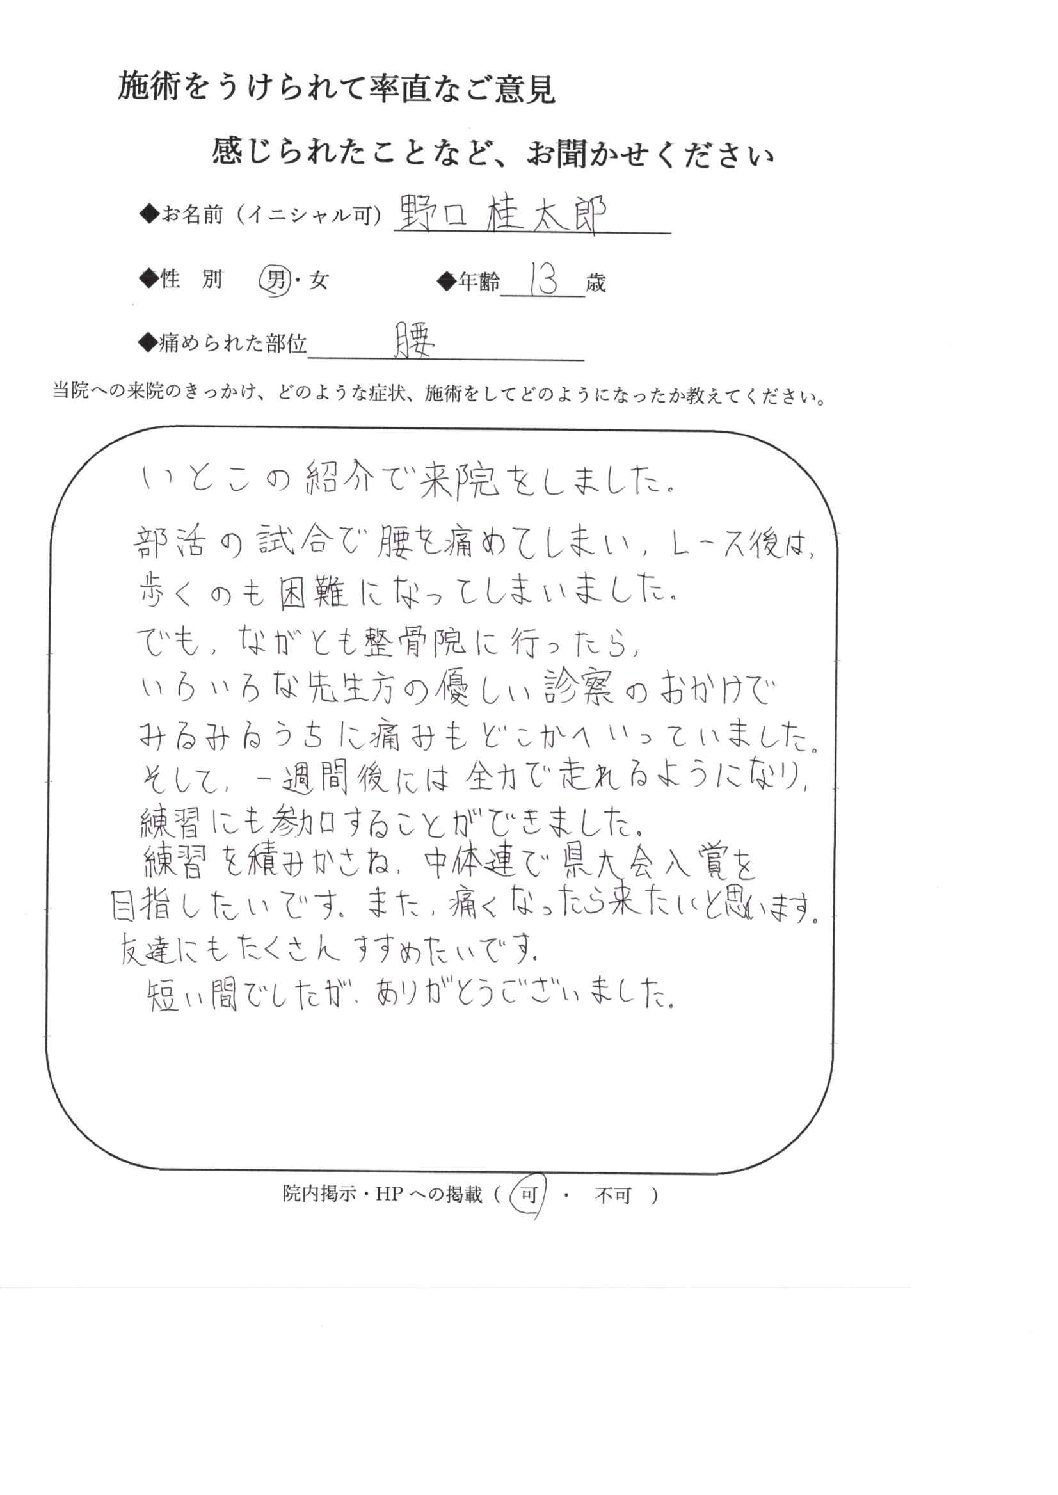 施術をうけられて率直なご意見
感じられたことなど、お聞かせください
◆お名前（イニシャル可） 野口 桂太郎
◆性　別　男・女　◆年齢 13 歳
◆痛められた部位 腰
当院への来院のきっかけ、どのような症状、施術をしてどのようになったか教えてください。
いとこの紹介で来院をしました。
部活の試合で腰を痛めてしまい，レース後は，
歩くのも困難になってしまいました。
でも，ながとも整骨院に行ったら，
いろいろな先生方の優しい診察のおかげで
みるみるうちに痛みもどこかへいっていました。
そして，一週間後には全力で走れるようになり，
練習にも参加することができました。
練習を積みかさね，中体連で県大会入賞を
目指したいです。また，痛くなったら来たいと思います。
友達にもたくさんすすめたいです。
短い間でしたが，ありがとうございました。
院内掲示・HPへの掲載（ 可 ・ 不可 ）